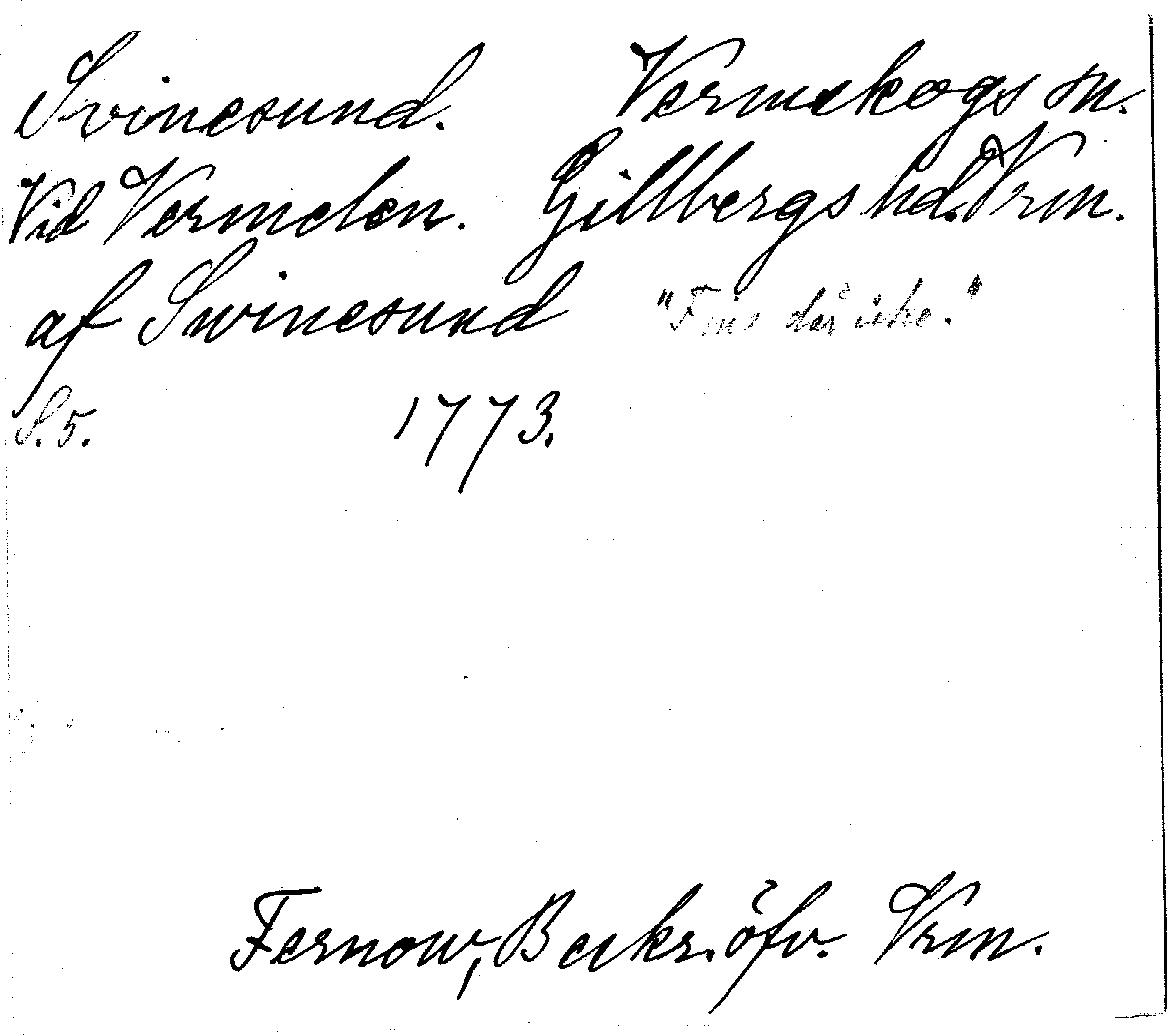 Svinesund. Vermskogs sn.
Vid Vermelen. Gillbergs hd. Vrm.
af Swinesund "Fins där icke."
S. 5. 1773.
Fernow, Beskr. öfv. Vrm.